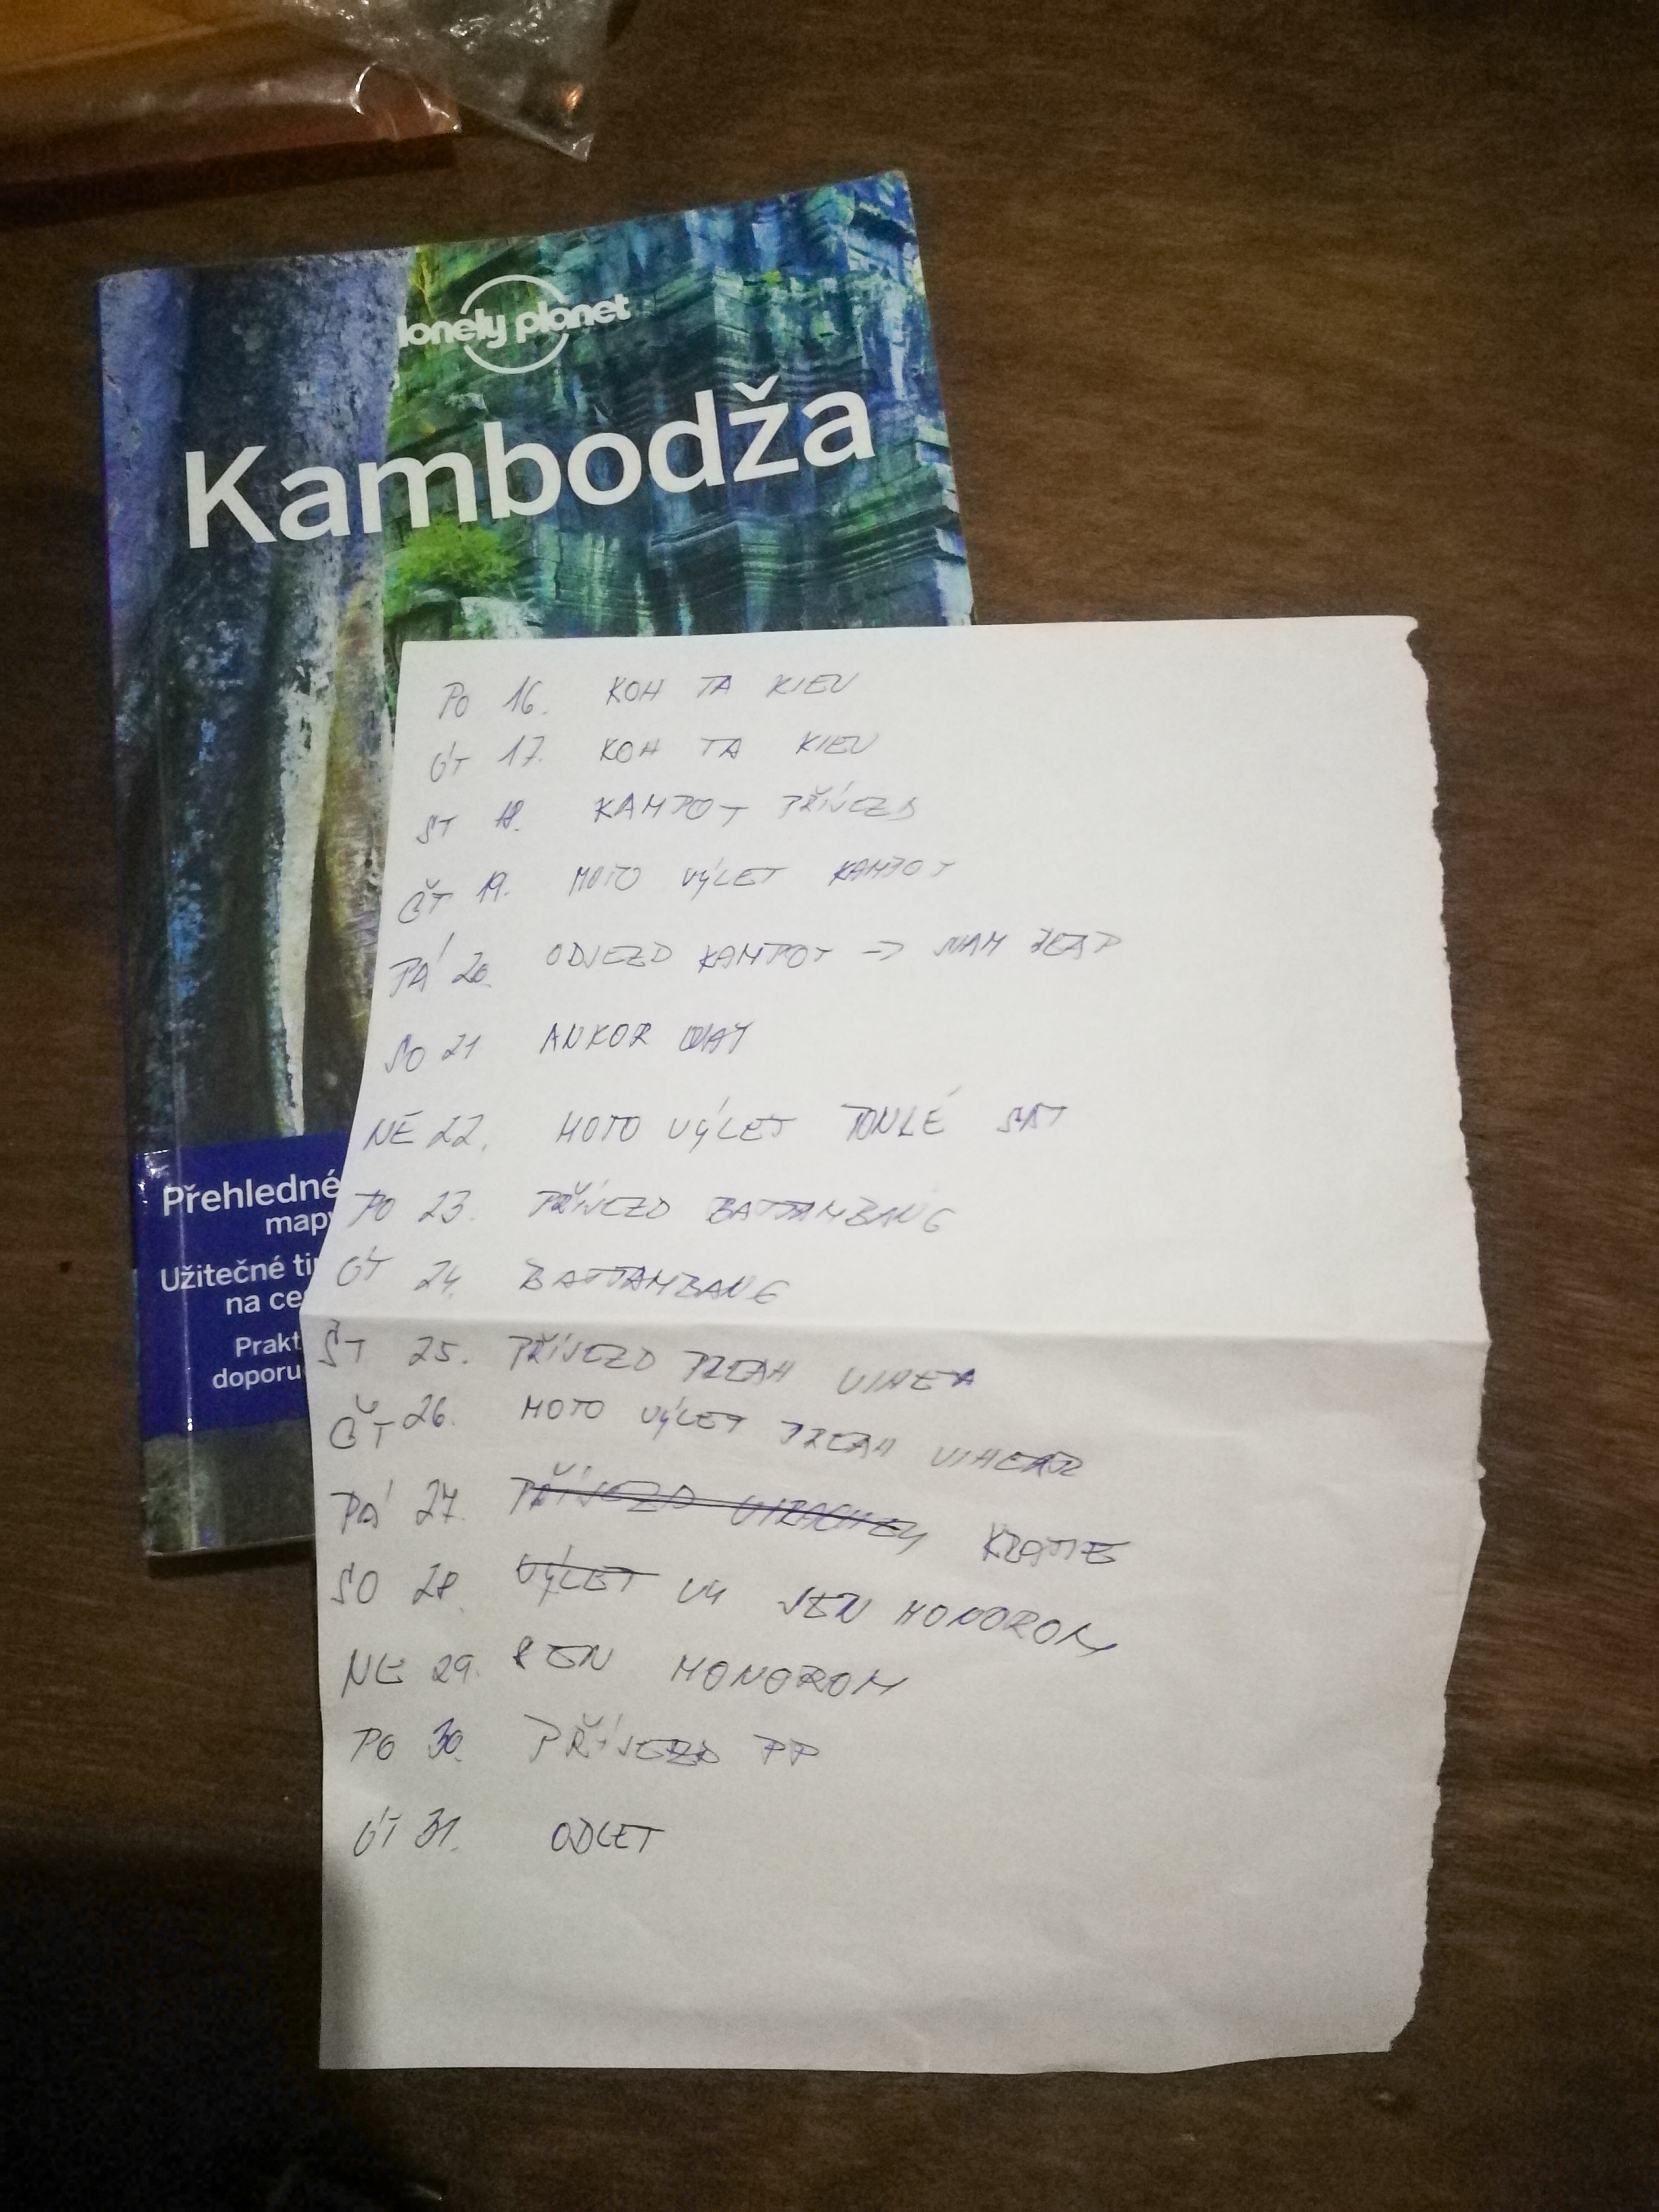 lonely planet
Kambodža
Přehledné
map
Užitečné ti
na ce
Prakt
doporu
PO 16. KOH TA KIEV
ÚT 17. KOH TA KIEV
ST 18. KAMPOT PŘÍJEZD
ČT 19. MOTO VÝLET KAMPOT
PÁ 20. ODJEZD KAMPOT → SIAM REAP
SO 21 ANKOR WAT
NE 22. MOTO VÝLET TONLÉ SAT
PO 23. PŘÍJEZD BATTAMBANG
ÚT 24. BATTAMBANG
ST 25. PŘÍJEZD PREAH VIHEA
ČT 26. MOTO VÝLET PREAH VIHEAR
PÁ 27. PŘÍJEZD VIRACHEY KRATIE
SO 28. VÝLET SEN MONOROM
NE 29. SEN MONOROM
PO 30. PŘÍJEZD PP
ÚT 31. ODLET